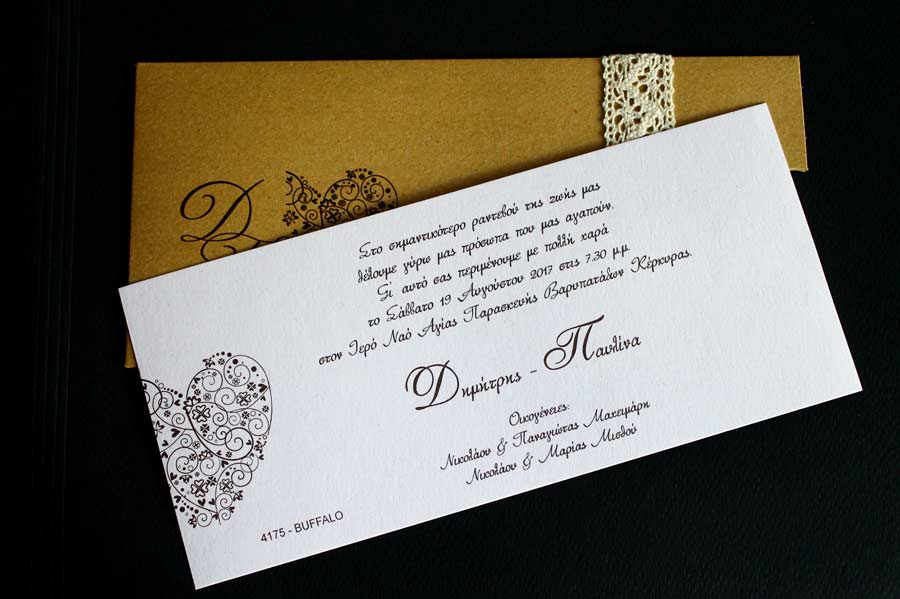 D
Στο σημαντικότερο ραντεβού της ζωής μας
θέλουμε γύρω μας πρόσωπα που μας αγαπούν.
Γι' αυτό σας περιμένουμε με πολλή χαρά
το Σάββατο 19 Αυγούστου 2017 στις 7.30 μ.μ.
στον Ιερό Ναό Αγίας Παρασκευής Βαρυπατάδων Κέρκυρας.
Δημήτρης - Παυλίνα
Οικογένειες:
Νικολάου & Παναγιώτας Μαχειμάρη
Νικολάου & Μαρίας Μισθού
4175 - BUFFALO